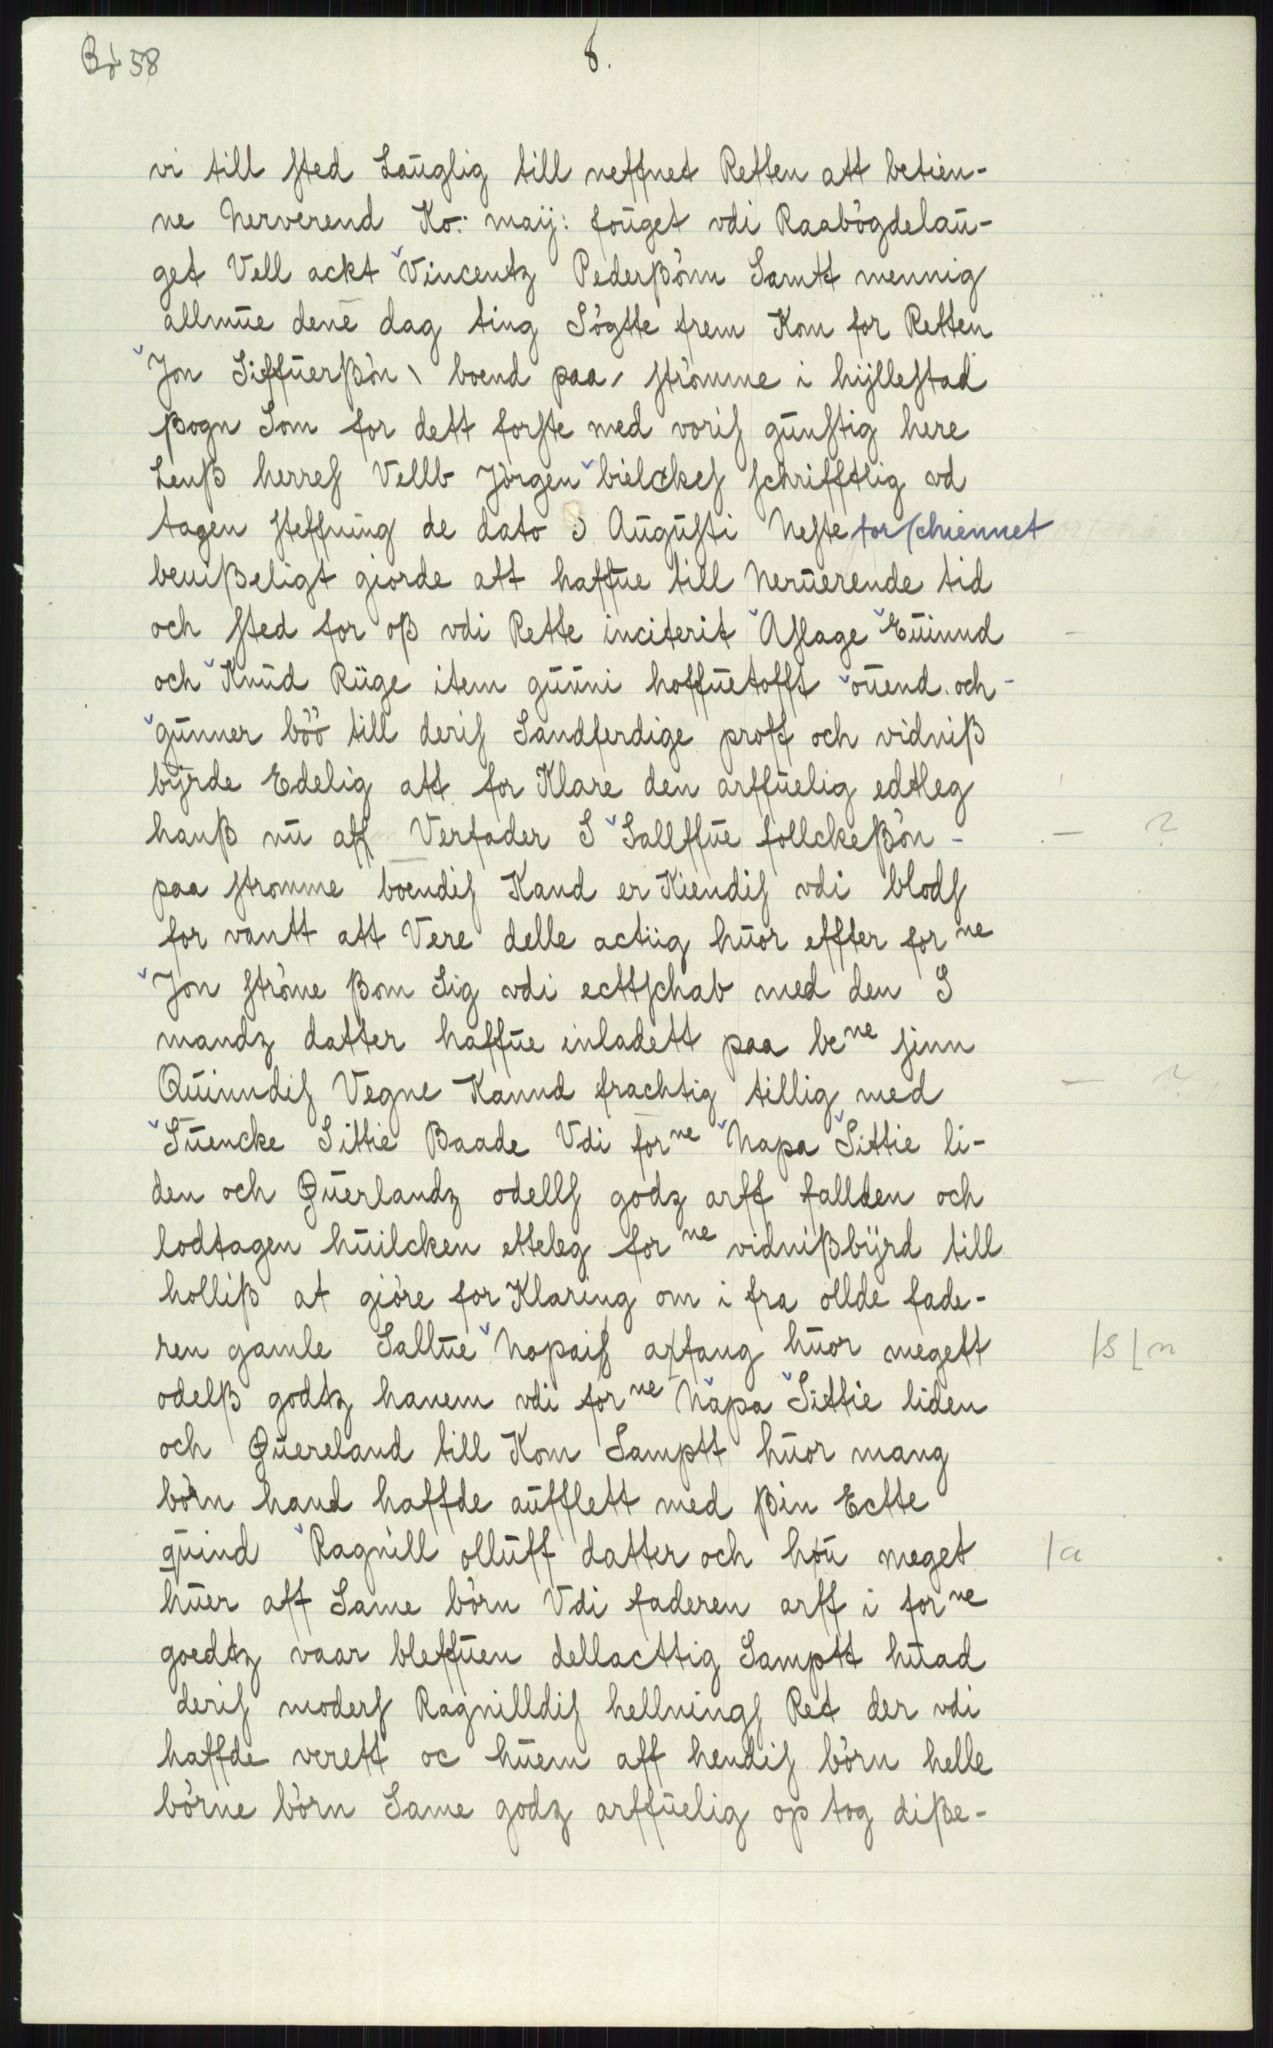 Bø 58
8.
vi till sted Lauglig till neffnet Retten att betien-
ne Nerverend Ko: maÿ: fouget vdi Raabögdelau-
get Vell ackt Vincentz Pederßönn Samtt mennig
allmue dene dag ting Sögtte frem Kom for Retten
Jon Siffuerßön \ boend paa / strömme i hÿllestad
ßogn Som for dett forste med voris gunstig here
Lenß herres Vellb Jörgen bielckes schrifftlig vd
tagen steffning de dato 3 Augusti Neste forschiennet
beuißeligt giorde att haffue till Neruerende tid
och sted for oß vdi Rette inciterit Aslage Euinnd
och Knud Rüge item guuni hoffuetofft ouend. och
gunner böö till deris Sandferdige proff och vidniß
bÿrde Edelig att for Klare den arffuelig edtleg
hanß nu aff Verfader S Sallffue follckeßön -
paa stromme boendis Kand er Kiendis vdi blods
for vantt att Vere delle actiig huor effter for ne
Jon ströme ßom Sig vdi ecttschab med den S
mandz datter haffue inladett paa be ne sinn
Quinndis Vegne Kannd frachtig tillig med
Suencke Sittie Baade Vdi for ne Napa Sittie li-
den och Querlandz odells godz arff fallden och
lodtagen huilcken etteleg for ne vidnißbÿrd till
holliß at giöre for Klaring om i fra ollde fade-
ren gamle Sallue Nopais arfang huor megett |s |n
odelß godtz hanem vdi for ne Napa Sittie liden
och Quereland till Kom Samptt huor mang
börn hand haffde aufflett med ßin Ectte
quind Ragnill olluff datter och hou meget |a
huer aff Same börn Vdi faderen arff i for ne
goedtz vaar bleffuen dellacttig Samptt huad
deris moders Ragnilldis hellnings Ret der vdi
haffde verett oc huem aff hendis börn helle
börne börn Same godz arffuelig op tog diße-